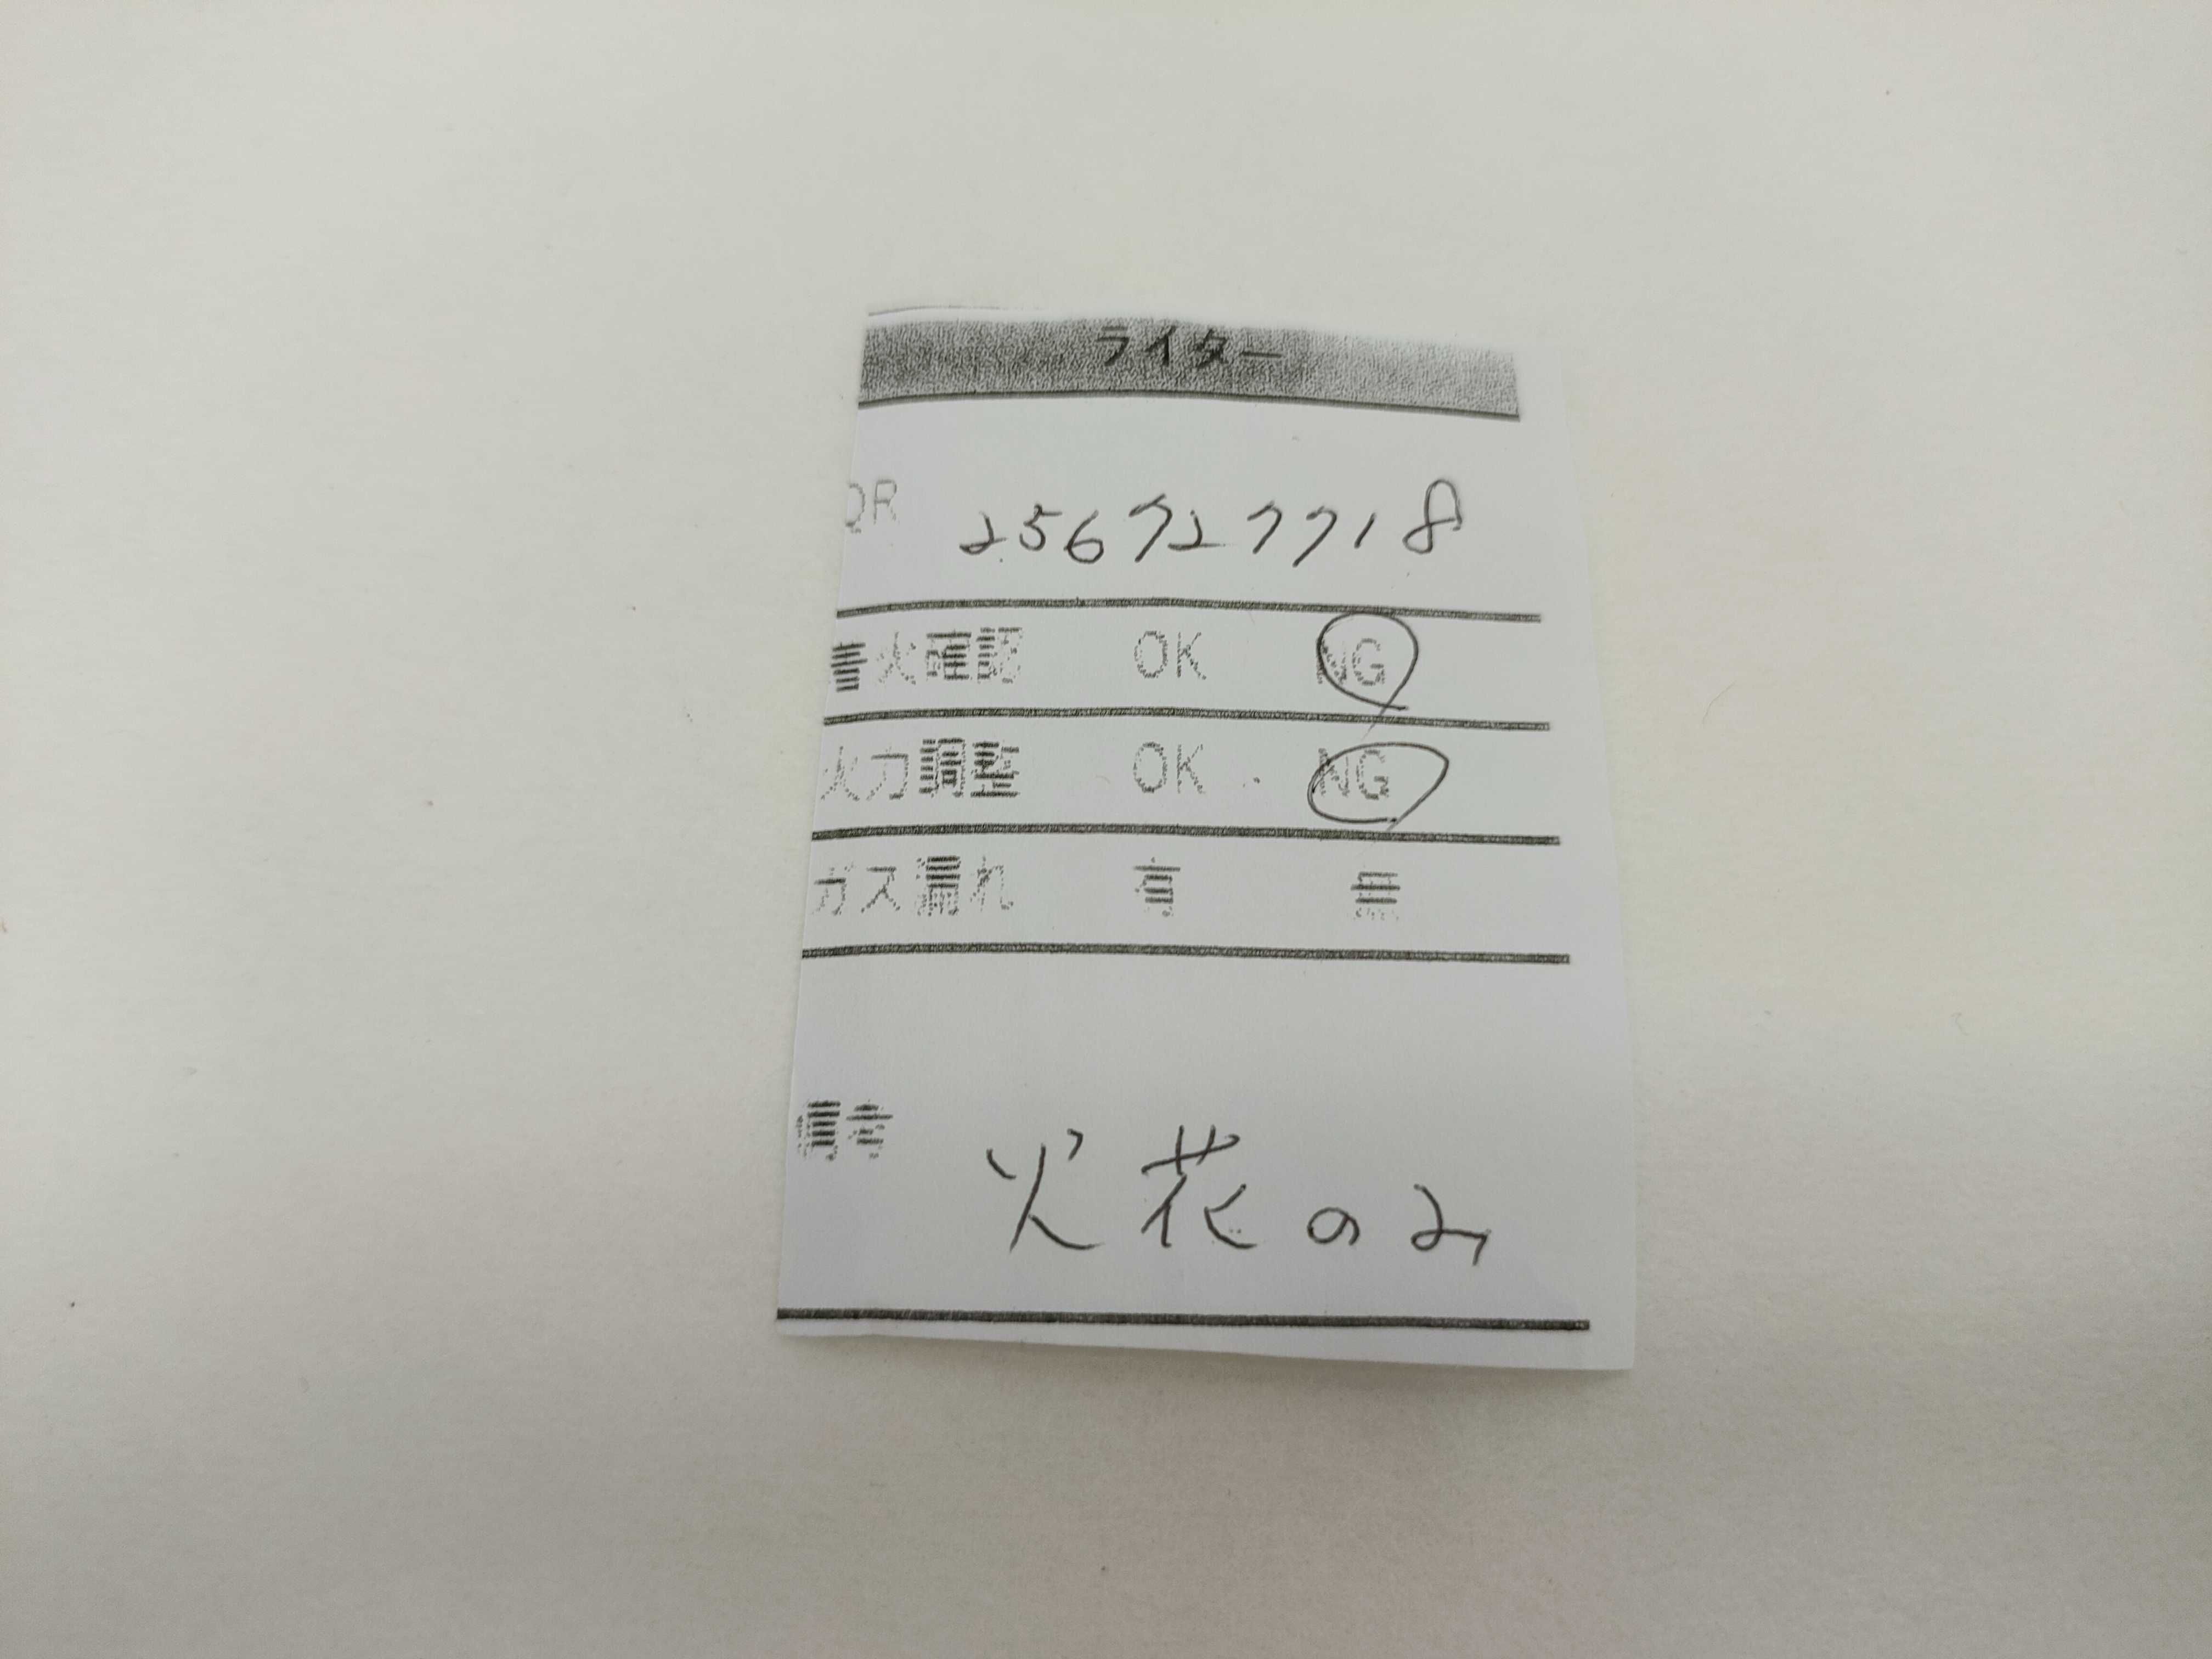 ライター
QR 2567277718
着火確認 OK NG
火力調整 OK NG
ガス漏れ 有 無
備考 火花のみ